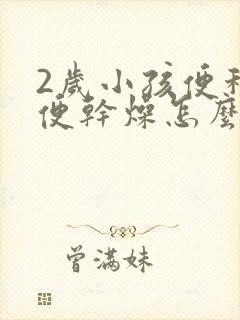 2歲小孩便
便幹燥怎麼
曾滿妹